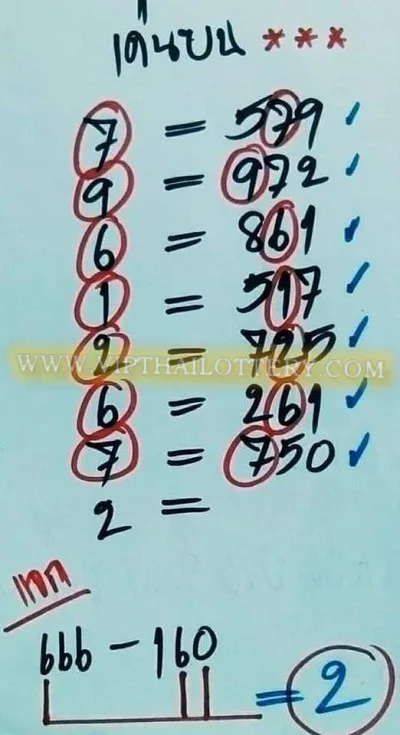 เด่นบน ***
7 = 579 ✓
9 = 972 ✓
6 = 861 ✓
1 = 517 ✓
2 = 725 ✓
WWW.VIPTHAILOTTERY.COM
6 = 261 ✓
7 = 750 ✓
2 =
แจก
666 - 160
= 2